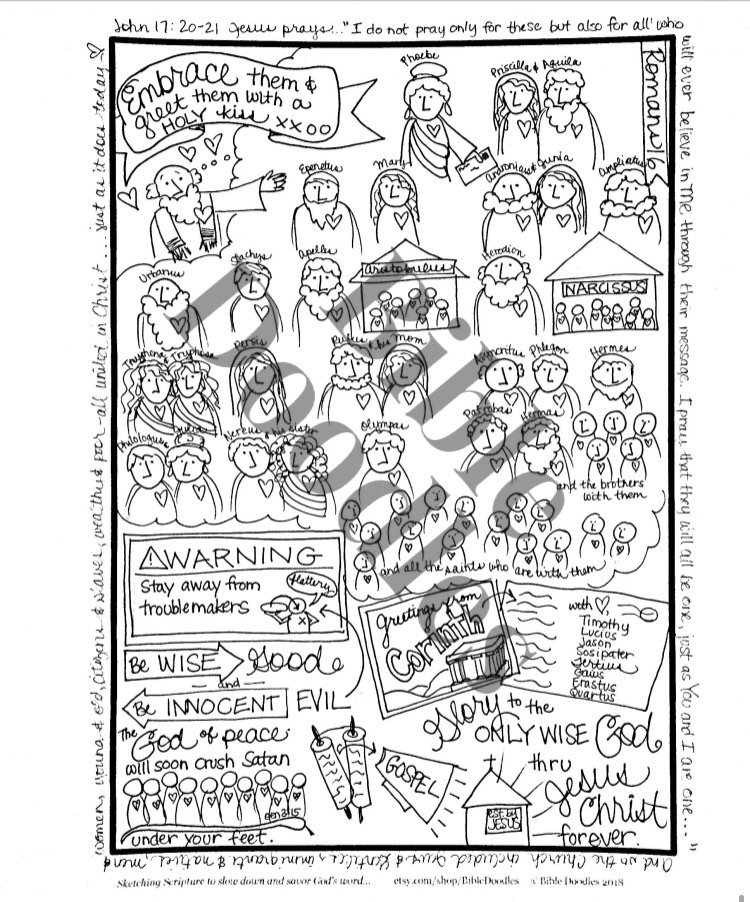 John 17:20-21 Jesus prays:.."I do not pray only for these but also for all who
will ever believe in me through their message. I pray that they will all be one, just as You and I are one..."
And so the Church included Jews & Gentiles, immigrants & natives, men &
women, young & old, citizens & slaves, wealthy & poor - all united in Christ... just as it does today
Romans 16
EMBRACE them &
greet them with a
HOLY kiss xxoo
Phoebe
Priscilla & Aquila
Epenetus
Mary
Andronicus & Junia
Ampliatus
Urbanus
Stachys
Apelles
Aristobulus
Herodion
NARCISSUS
Tryphena
Tryphosa
Persis
Rufus & his Mom
Asyncritus
Phlegon
Hermes
Philologus
Julia
Nereus & his sister
Olympas
Patrobas
Hermas
and the brothers
with them
and all the saints who are with them
Bible
Doodles
WARNING
Stay away from
troublemakers
flattery
Be WISE
Good
and
Be INNOCENT
EVIL
The God of peace
will soon crush Satan
Gen 3:15
under your feet.
greetings from
Corinth
with
Timothy
Lucius
Jason
Sosipater
Tertius
Gaius
Erastus
Quartus
GOSPEL
Glory to the
ONLY WISE God
thru
Jesus
Christ
forever.
est. by
JESUS
Sketching Scripture to slow down and savor God's word...
etsy.com/shop/BibleDoodles
© Bible Doodles 2018